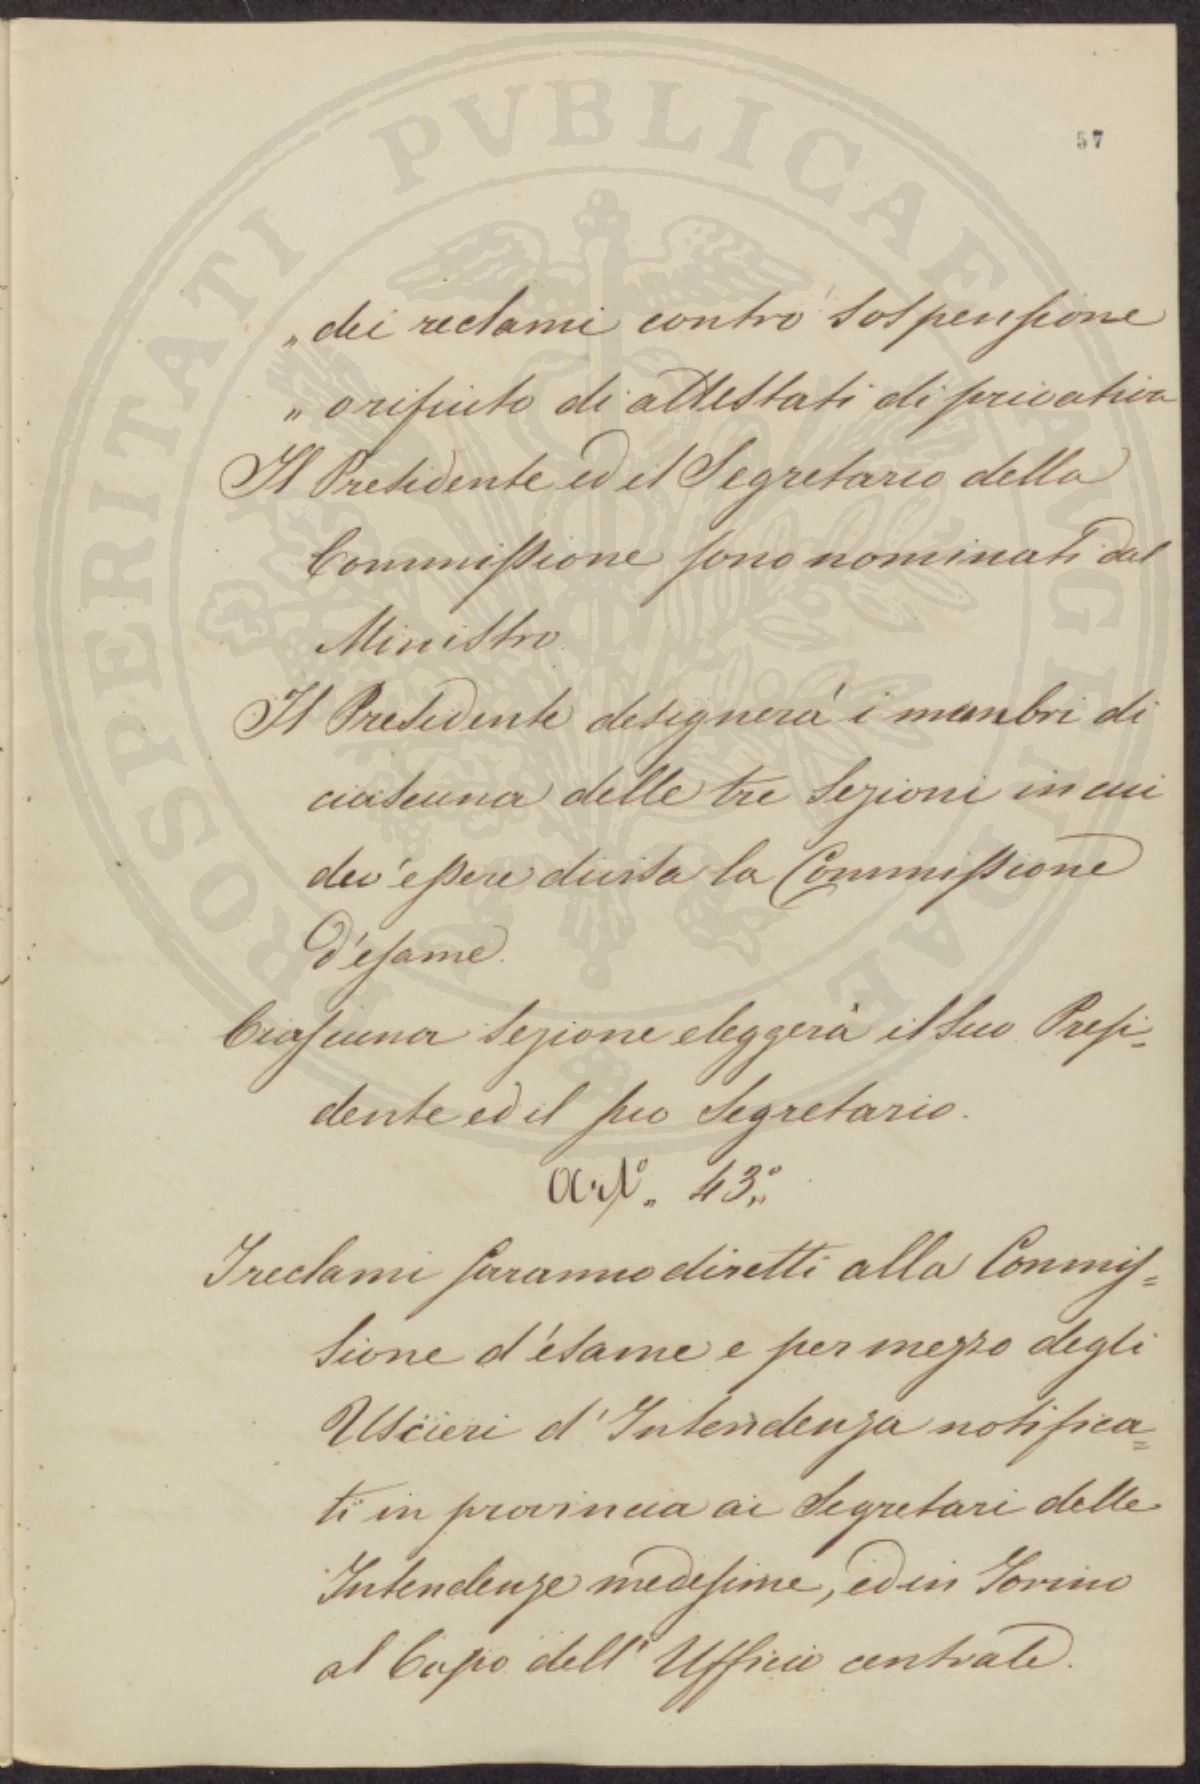 57
„ dei reclami contro sospensione
„ o rifiuto di attestati di privativa
Il Presidente ed il Segretario della
Commissione sono nominati dal
Ministro.
Il Presidente designerà i membri di
ciascuna delle tre Sezioni in cui
dev'essere divisa la Commissione
d'esame.
Ciascuna Sezione eleggerà il suo Presi-
dente ed il suo Segretario.
Art.º 43º
I reclami saranno diretti alla Commis=
sione d'esame e per mezzo degli
Uscieri d'Intendenza notifica=
ti in provincia ai Segretari delle
Intendenze medesime, ed in Torino
al Capo dell'Ufficio centrale.
PROSPERITATI PVBLICAE AVGENDAE